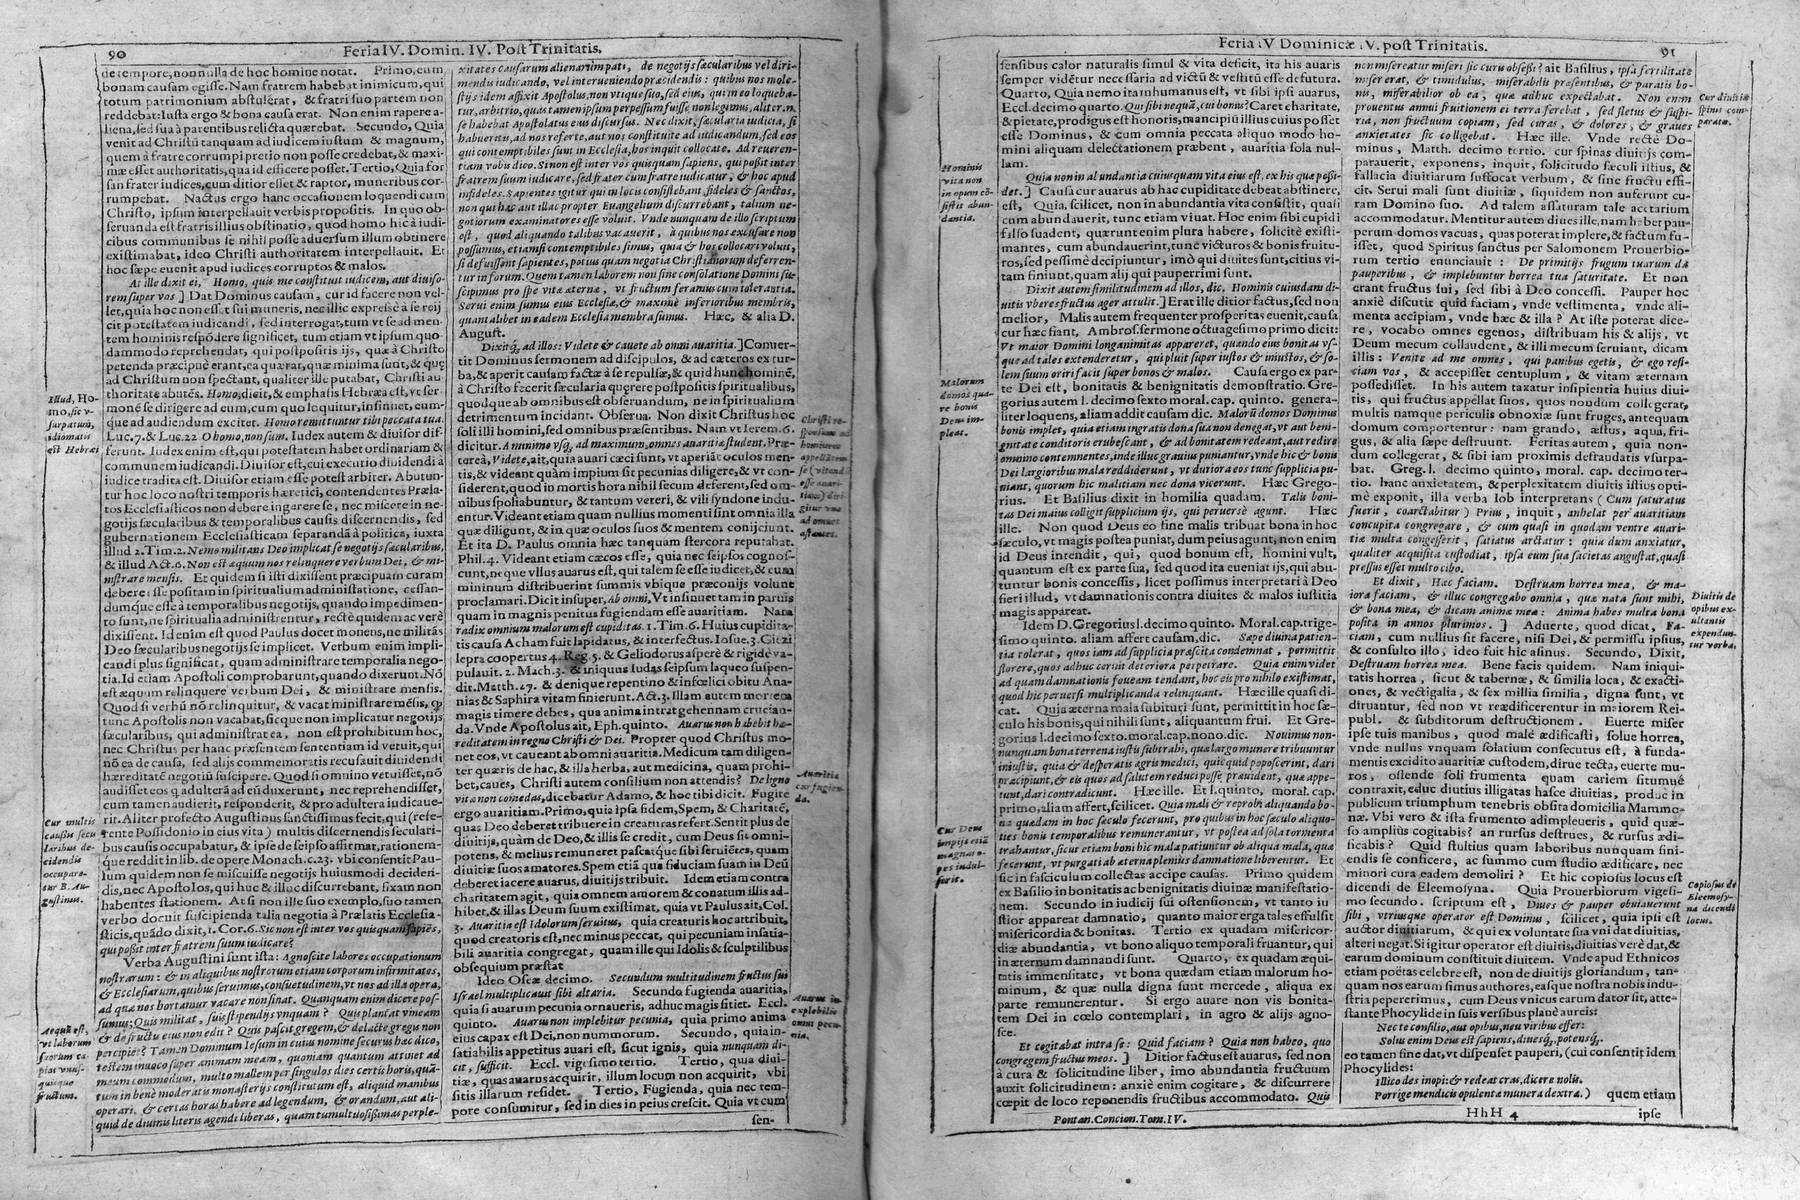 90
Feria IV. Domin. IV. Post Trinitatis.
de tempore, non nulla de hoc homine notat. Primo, cum
bonam causam egisse. Nam fratrem habebat inimicum, qui
totum patrimonium abstulerat, & fratri suo partem non
reddebat: Iusta ergo & bona causa erat. Non enim rapere a-
liena, sed sua à parentibus relicta quærebat. Secundo, Quia
venit ad Christũ tanquam ad iudicem iustum & magnum,
quem à fratre corrumpi pretio non posse credebat, & maxi-
mæ esset authoritatis, qua id efficere posset. Tertio, Quia for
san frater iudices, cum ditior esset & raptor, muneribus cor-
rumpebat. Nactus ergo hanc occasionem loquendi cum
Christo, ipsum interpellauit verbis propositis. In quo ob-
seruanda est fratris illius obstinatio, quod homo hic à iudi-
cibus communibus se nihil posse aduersum illum obtinere
existimabat, ideo Christi authoritatem interpellauit. Et
hoc sæpe euenit apud iudices corruptos & malos.
At ille dixit ei, Homo, quis me constituit iudicem, aut diuiso-
rem super vos ] Dat Dominus causam, cur id facere non vel-
let, quia hoc non esset sui muneris, nec illic expresse à se reij
cit potestatem iudicandi, sed interrogat, tum vt se ad men-
tem hominis respõdere significet, tum etiam vt ipsum quo-
dammodo reprehendat, qui postpositis ijs, quæ à Christo
petenda præcipuè erant, ea quærat, quæ minima sunt, & quę
ad Christum non spectant, qualiter ille putabat, Christi au-
thoritate abutẽs. Homo, dicit, & emphasis Hebræa est, vt ser-
monẽ se dirigere ad eum, cum quo loquitur, insinuet, eum-
que ad audiendum excitet. Homo remittuntur tibi peccata tua.
Luc. 7. & Luc. 22 O homo, non sum. Iudex autem & diuisor dif-
ferunt. Iudex enim est, qui potestatem habet ordinariam &
communem iudicandi. Diuisor est, cui executio diuidendi à
iudice tradita est. Diuisor etiam esse potest arbiter. Abutun-
tur hoc loco nostri temporis hæretici, contendentes Præla-
tos Ecclesiasticos non debere ingerere se, nec miscere in ne-
gotijs sæcularibus & temporalibus causis discernendis, sed
gubernationem Ecclesiasticam separandã à politica, iuxta
illud 2. Tim. 2. Nemo militans Deo implicat se negotijs sæcularibus,
& illud Act. 6. Non est æquum nos relinquere verbum Dei, & mi-
nistrare mensis. Et quidem si isti dixissent præcipuam curam
debere esse positam in spiritualium administatione, cessan-
dumque esse à temporalibus negotijs, quando impedimen-
to sunt, ne spiritualia administrentur, rectè quidem ac verè
dixissent. Id enim est quod Paulus docet monens, ne militãs
Deo sæcularibus negotijs se implicet. Verbum enim impli-
candi plus significat, quam administrare temporalia nego-
tia. Id etiam Apostoli comprobarunt, quando dixerunt. Nõ
est æquum relinquere verbum Dei, & ministrare mensis.
Quod si verbũ nõ relinquitur, & vacat ministrare mẽsis, ꝙ
tunc Apostolis non vacabat, sicque non implicatur negotijs
sæcularibus, qui administrat ea, non est prohibitum hoc,
nec Christus per hanc præsentem sententiam id vetuit, qui
nõ ea de causa, sed alijs commemoratis recusauit diuidendi
hæreditatẽ negotiũ suscipere. Quod si omnino vetuisset, nõ
audisset eos q̃ adulterã ad eũ duxerunt, nec reprehendisset,
cum tamen audierit, responderit, & pro adultera iudicaue-
rit. Aliter profecto Augustinus sanctissimus fecit, qui (refe-
rente Possidonio in eius vita) multis discernendis seculari-
bus causis occupabatur, & ipse de seipso affirmat, rationem-
que reddit in lib. de opere Monach. c. 23. vbi consentit Pau-
lum quidem non se miscuisse negotijs huiusmodi decideri-
dis, nec Apostolos, qui huc & illuc discurrebant, fixam non
habentes stationem. At si non ille suo exemplo, suo tamen
verbo docuit suscipienda talia negotia à Prælatis Ecclesia-
sticis, quãdo dixit, 1. Cor. 6. Sic non est inter vos quisquam sapiẽs,
qui possit inter fratrem suum iudicare?
Verba Augustini sunt ista: Agnoscite labores occupationum
nostrarum: & in aliquibus nostrorum etiam corporum infirmitates,
& Ecclesiarum, quibus seruimus, consuetudinem, vt nos ad illa opera,
ad quæ nos hortamur vacare non sinat. Quanquam enim dicere pos-
sumus: Quis militat, suis stipendijs vnquam? Quis plantat vineam
& de fructu eius non edit? Quis pascit gregem, & de lacte gregis non
percipit? Tamen Dominum Iesum in cuius nomine securus hæc dico,
testem inuoco super animam meam, quoniam quantum attinet ad
meum commodum, multo mallem per singulos dies certis horis, quã-
tum in bene moderatis monasterijs constitutum est, aliquid manibus
operari, & certas horas habere ad legendum, & orandum, aut ali-
quid de diuinis literis agendi liberas, quam tumultuosissimas perple-
Illud, Ho-
mo, sic v-
surpatum,
idiomatis
est Hebræi
Cur multis
causis secu
laribus de-
cidendis
occupare-
tur B. Au-
gustinus.
Aequũ est,
vt laborum
suorum ca-
piat vnus-
quisque
fructum.
xitates causarum alienarum pati, de negotijs sæcularibus vel diri-
mendis iudicando, vel interueniendo præcidendis: quibus nos mole-
stijs idem affixit Apostolus, non vtique suo, sed eius, qui in eo loqueba-
tur, arbitrio, quas tamen ipsum perpessum fuisse non legimus, aliter. n.
se habebat Apostolatus eius discursus. Nec dixit, sæcularia iudicia, si
habueritis, ad nos referte, aut nos constituite ad iudicandum, sed eos
qui contemptibiles sunt in Ecclesia, hos inquit collocate. Ad reueren-
tiam vobis dico. Si non est inter vos quisquam sapiens, qui possit inter
fratrem suum iudicare, sed frater cum fratre iudicatur, & hoc apud
infideles. Sapientes igitur qui in locis consistebant fideles & sanctos,
non qui hac aut illac propter Euangelium discurrebant, talium ne-
gotiorum examinatores esse voluit. Vnde nunquam de illo scriptum
est, quod aliquando talibus vacauerit, à quibus nos excusare non
possumus, etiamsi contemptibiles simus, qua & hos collocari voluit,
si defuissent sapientes, potius quam negotia Christianorum deferren-
tur in forum. Quem tamen laborem non sine consolatione Domini su-
scipimus pro spe vitæ æternæ, vt fructum feramus cum tolerantia.
Serui enim sumus eius Ecclesiæ, & maximè inferioribus membris,
quantalibet in eadem Ecclesia membra sumus. Hæc, & alia D.
August.
Dixitq́, ad illos: Videte & cauete ab omni auaritia.] Conuer-
tit Dominus sermonem ad discipulos, & ad cæteros ex tur-
ba, & aperit causam factæ à se repulsæ, & quid hunc hominẽ,
à Christo fecerit sæcularia quęrere postpositis spiritualibus,
quodque ab omnibus est obseruandum, ne in spiritualium
detrimentum incidant. Obserua. Non dixit Christus hoc
soli illi homini, sed omnibus præsentibus. Nam vt Ierem. 6.
dicitur. A minimo vsq, ad maximum, omnes auaritiæ student. Præ-
tereà, Videte, ait, quia auari cæci sunt, vt aperiãt oculos men-
tis, & videant quàm impium sit pecunias diligere, & vt con-
siderent, quod in mortis hora nihil secum deferent, sed om-
nibus spoliabuntur, & tantum veteri, & vili syndone indu-
entur. Videant etiam quam nullius momenti sint omnia illa
quæ diligunt, & in quæ oculos suos & mentem conijciunt.
Et ita D. Paulus omnia hæc tanquam stercora reputabat.
Phil. 4. Videant etiam cæcos esse, quia nec seipsos cognos-
cunt, neque vllus auarus est, qui talem se esse iudicet, & cum
minimum distribuerint summis vbique præconijs volunt
proclamari. Dicit insuper, ab omni, Vt insinuet tam in paruis
quam in magnis penitus fugiendam esse auaritiam. Nata
radix omnium malorum est cupiditas. 1. Tim. 6. Huius cupidita-
tis causa Acham fuit lapidatus, & interfectus. Iosue. 3. Giezi
lepra coopertus 4. Reg. 5. & Geliodorus asperè & rigidè va-
pulauit. 2. Mach. 3. & iniquus Iudas seipsum laqueo suspen-
dit. Matth. 27. & denique repentino & infœlici obitu Ana-
nias & Saphira vitam finierunt. Act. 3. Illam autem mortem
magis timere debes, qua anima intrat gehennam crucian-
da. Vnde Apostolus ait, Eph. quinto. Auarus non habebit hæ-
reditatem in regno Christi & Dei. Propter quod Christus mo-
net eos, vt caueant ab omni auaritia. Medicum tam diligen-
ter quæris de hac, & illa herba, aut medicina, quam prohi-
bet, caues, Christi autem consilium non attendis? De ligno
vitæ non comedas, dicebatur Adamo, & hoc tibi dicit. Fugite
ergo auaritiam. Primo, quia ipsa fidem, Spem, & Charitatẽ,
quas Deo deberet tribuere in creaturas refert. Sentit plus de
diuitijs, quàm de Deo, & illis se credit, cum Deus sit omni-
potens, & melius remuneret pascatque sibi seruiẽtes, quam
diuitiæ suos amatores. Spem etiã quã fiduciam suam in Deũ
deberet iacere auarus, diuitijs tribuit. Idem etiam contra
charitatem agit, quia omnem amorem & conatum illis ad-
hibet, & illas Deum suum existimat, quia vt Paulus ait, Col.
3. Auaritia est Idolorum seruitus, quia creaturis hoc attribuit,
quod creatoris est, nec minus peccat, qui pecuniam insatia-
bili auaritia congregat, quam ille qui Idolis & sculptilibus
obsequium præstat
Ideo Oseæ decimo. Secundum multitudinem fructus sui
Israel multiplicauit sibi altaria. Secundo fugienda auaritia,
quia si auarus pecunia ornaueris, adhuc magis sitiet. Eccl.
quinto. Auarus non implebitur pecunia, quia primo anima
eius capax est Dei, non nummorum. Secundo, quia in-
satiabilis appetitus auari est, sicut ignis, quia nunquam di-
cit, sufficit. Eccl. vigesimo secundo. Tertio, quia diui-
tiæ, quas auarus acquirit, illum locum non acquirit, vbi
sitis illarum residet. Tertio, Fugienda, quia nec tem-
pore consumitur, sed in dies in peius crescit. Quia vt cum
sen-
Auaritia
cur fugien-
da.
Auarus in-
explebilis
omni pecu-
nia.
Feria IV Dominicæ IV. post Trinitatis.
91
sensibus calor naturalis simul & vita deficit, ita his auaris
semper vidẽtur necessaria ad victũ & vestitũ esse defutura.
Quarto, Quia nemo ita inhumanus est, vt sibi ipsi auarus,
Eccl. decimo quarto. Qui sibi nequã, cui bonus? Caret charitate,
& pietate, prodigus est honoris, mancipiũ illius cuius posset
esse Dominus, & cum omnia peccata aliquo modo ho-
mini aliquam delectationem præbent, auaritia sola nul-
lam.
Quia non in abundantia cuiusquam vita eius est, ex his quæ possi-
det.] Causa cur auarus ab hac cupiditate debeat abstinere,
est, Quia, scilicet, non in abundantia vita consistit, quasi
cum abundauerit, tunc etiam viuat. Hoc enim sibi cupidi
falso suadent, quærunt enim plura habere, solicitè existi-
mantes, cum abundauerint, tunc victuros & bonis fruitu-
ros, sed pessimè decipiuntur, imò qui diuites sunt, citius vi-
tam finiunt, quam alij qui pauperrimi sunt.
Dixit autem similitudinem ad illos, dic. Hominis cuiusdam di-
uitis vberes fructus ager attulit.] Erat ille ditior factus, sed non
melior, Malis autem frequenter prosperitas euenit, causa
cur hæc fiant, Ambros. sermone octuagesimo primo dicit:
Vt maior Domini longanimitas appareret, quando eius bonitas vs-
que ad tales extenderetur, qui pluit super iustos & iniustos, & so-
lem suum oriri facit super bonos & malos. Causa ergo ex par-
te Dei est, bonitatis & benignitatis demonstratio. Gre-
gorius autem l. decimo sexto moral. cap. quint. genera-
liter loquens, aliam addit causam dic. Malorũ domos Dominus
bonis implet, quia etiam ingratis dona sua non denegat, vt aut beni-
gnitate conditoris erubescant, & ad bonitatem redeant, aut redire
omnino contemnentes, inde illuc grauius puniantur, vnde hic & bonis
Dei largioribus mala reddiderunt, vt duriora eos tunc supplicia pu-
niant, quorum hic malitiam nec dona vicerunt. Hæc Grego-
rius. Et Basilius dixit in homilia quadam. Talis boni-
tas Dei maius colligit supplicium ijs, qui peruersè agunt. Hæc
ille. Non quod Deus eo fine malis tribuat bona in hoc
sæculo, vt magis postea puniat, dum peius agunt, non enim
id Deus intendit, qui, quod bonum est, homini vult,
quantum est ex parte sua, sed quod ita eueniat ijs, qui abu-
tuntur bonis concessis, licet possimus interpretari à Deo
fieri illud, vt damnationis contra diuites & malos iustitia
magis appareat.
Idem D. Gregorius l. decimo quinto. Moral. cap. trige-
simo quinto. aliam affert causam, dic. Sæpe diuina patien-
tia tolerat, quos iam ad supplicia præscita condemnat, permittit
florere, quos adhuc cernit deteriora perpetrare. Quia enim videt
ad quam damnationis foueam tendant, hoc eis pro nihilo existimat,
quod hic peruersi multiplicanda relinquant. Hæc ille quasi di-
cat. Quia æterna mala subituri sunt, permittit in hoc sæ-
culo his bonis, qui nihili sunt, aliquantum frui. Et Gre-
gorius l. decimo sexto. moral. cap. nono. dic. Nouimus non-
nunquam bona terrena iustis subtrahi, quæ largo munere tribuuntur
iniustis, quia & desperatis ægris medici, quicquid poposcerint, dari
præcipiunt, & eis quos ad salutem reduci posse præuident, quæ appe-
tunt, dari contradicunt. Hæc ille. Et l. quinto, moral. cap.
primo, aliam affert, scilicet. Quia mali & reprobi aliquando bo-
na quædam in hoc sæculo fecerunt, pro quibus in hoc sæculo aliquo-
ties bonis temporalibus remunerantur, vt postea ad sola tormenta
trahantur, sicut etiam boni hic mala patiuntur ob aliqua mala, quæ
fecerunt, vt purgati ab æternæ plenius damnatione liberentur. Et
sic in fasciculum collectas accipe causas. Primo quidem
ex Basilio in bonitatis ac benignitatis diuinæ manifestatio-
nem. Secundo in iudicij sui ostensionem, vt tanto iu
stior appareat damnatio, quanto maior erga tales effulsit
misericordia & bonitas. Tertio ex quadam misericor-
diæ abundantia, vt bono aliquo temporali fruantur, qui
in æternum damnandi sunt. Quarto, ex quadam æqui-
tatis immensitate, vt bona quædam etiam malorum ho-
minum, & quæ nulla digna sunt mercede, aliqua ex
parte remunerentur. Si ergo auare non vis bonita-
tem Dei in cœlo contemplari, in agro & alijs agno-
sce.
Et cogitabat intra se: Quid faciam? Quia non habeo, quo
congregem fructus meos. ] Ditior factus est auarus, sed non
à cura & solicitudine liber, imo abundantia fructuum
auxit solicitudinem: anxiè enim cogitare, & discurrere
cœpit de loco reponendis fructibus accommodato. Quis
Pontan. Concion. Tom. IV.
Hominis
vita non
in opum cõ
sistit abun-
dantia.
Malorum
domos qua-
re bonis
Deus im-
pleat.
Cur Deus
impijs etiã
non mereatur miseri sic curis obsessi? ait Basilius, ipsa fertilitate
miser erat, & timidulus, miserabilis præsentibus, & paratis bo-
nis, miserabilior ob ea, quæ adhuc expectabat. Non enim
prouentus annui fruitionem ei terra ferebat, sed fletus & suspi-
ria, non fructuum copiam, sed curas, & dolores, & graues
anxietates sic colligebat. Hæc ille. Vnde rectè Do-
minus, Matth. decimo tertio. cur spinas diuitijs com-
parauerit, exponens, inquit, solicitudo sæculi istius, &
fallacia diuitiarum suffocat verbum, & sine fructu effi-
cit. Serui mali sunt diuitiæ, siquidem non auferunt cu-
ram Domino suo. Ad talem assaturam tale acetarium
accommodatur. Mentitur autem diues ille, nam habet pau-
perum domos vacuas, quas poterat implere, & factum fu-
isset, quod Spiritus sanctus per Salomonem Prouerbio-
rum tertio enunciauit: De primitijs frugum tuarum da
pauperibus, & implebuntur horrea tua saturitate. Et non
erant fructus sui, sed sibi à Deo concessi. Pauper hoc
anxiè discutit quid faciam, vnde vestimenta, vnde ali-
menta accipiam, vnde hæc & illa? At iste poterat dice-
re, vocabo omnes egenos, distribuam his & alijs, vt
Deum mecum collaudent, & illi mecum seruiant, dicam
illis: Venite ad me omnes, qui panibus egetis, & ego refi-
ciam vos, & accepisset centuplum, & vitam æternam
possedisset. In his autem taxatur insipientia huius diui-
tis, qui fructus appellat suos, quos nondum collegerat,
multis namque periculis obnoxiæ sunt fruges, antequam
domum comportentur: nam grando, æstus, aqua, fri-
gus, & alia sæpe destruunt. Feritas autem, quia non-
dum collegerat, & sibi iam proximis defraudatis vsurpa-
bat. Greg. l. decimo quinto, moral. cap. decimo ter-
tio. hanc anxietatem, & perplexitatem diuitis istius opti-
mè exponit, illa verba Iob interpretans (Cum saturatus
fuerit, coarctabitur) Prius, inquit, anhelat per auaritiam
concupita congregare, & cum quasi in quodam ventre auari-
tiæ multa congesserit, satiatus arctatur: quia dum anxiatur,
qualiter acquisita custodiat, ipsa eum sua sacietas angustat, quasi
pressus esset multo cibo.
Et dixit, Hæc faciam. Destruam horrea mea, & ma-
iora faciam, & illuc congregabo omnia, quæ nata sunt mihi,
& bona mea, & dicam animæ meæ: Anima habes multa bona
posita in annos plurimos. ] Aduerte, quod dicat, Fa-
ciam, cum nullius sit facere, nisi Dei, & permissu ipsius,
& consulto illo, ideo fuit hic asinus. Secundo, Dixit,
Destruam horrea mea. Bene facis quidem. Nam iniqui-
tatis horrea, sicut & tabernæ, & similia loca, & exacti-
ones, & vectigalia, & sex millia similia, digna sunt, vt
diruantur, sed non vt reædificerentur in maiorem Rei-
publ. & subditorum destructionem. Euerte miser
ipse tuis manibus, quod malé ædificasti, solue horrea,
vnde nullus vnquam solatium consecutus est, à funda-
mentis excidito auaritiæ custodem, dirue tecta, euerte mu-
ros, ostende soli frumenta quam cariem situmué
contraxit, educ diutius illigatas hasce diuitias, produc in
publicum triumphum tenebris obsita domicilia Mammo-
næ. Vbi vero & ista frumento adimpleueris, quid quæ-
so amplius cogitabis? an rursus destrues, & rursus ædi-
ficabis? Quid stultius quam laboribus nunquam fini-
endis se conficere, ac summo cum studio ædificare, nec
minori cura eadem demoliri? Et hic copiosus locus est
dicendi de Eleemosyna. Quia Prouerbiorum vigesi-
mo secundo. scriptum est, Diues & pauper obuiauerunt
sibi, vtriusque operator est Dominus, scilicet, quia ipsi est
auctor diuitiarum, & qui ex voluntate sua vni dat diuitias,
alteri negat. Si igitur operator est diuitis, diuitias verè dat, &
earum dominum constituit diuitem. Vnde apud Ethnicos
etiam poëtas celebre est, non de diuitijs gloriandum, tan-
quam nos earum simus authores, easque nostra nobis indu-
stria pepererimus, cum Deus vnicus earum dator sit, atte-
stante Phocylide in suis versibus planè aureis:
Nec te consilio, aut opibus, neu viribus effer:
Solus enim Deus est sapiens, diuesq́, potensq́.
eo tamen fine dat, vt dispenset pauperi, (cui consentit idem
Phocylides:
Illico des inopi: & redeat cras, dicere nolis.
Porrige mendicis opulenta munera dextra.) quem etiam
HhH 4
ipse
Cur diuitiæ
spinis com-
paratæ.
Diuitis de
opibus ex-
ultantis
expendun-
tur verba.
Copiosus de
Eleemosy-
na dicendi
locus.